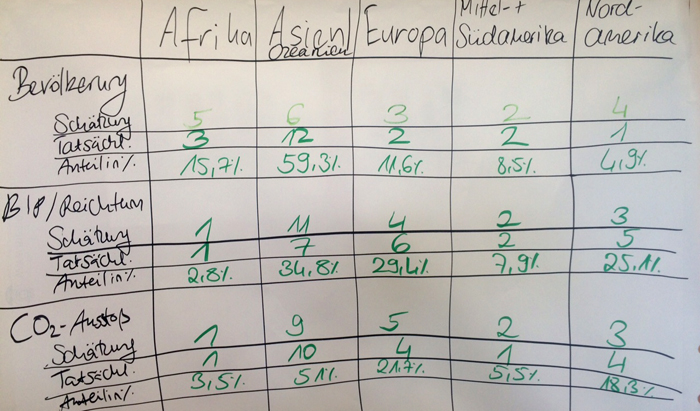 Afrika Asien Ozeanien Europa Mittel-+ Südamerika Nord-amerika
Bevölkerung
Schätzung 5 6 3 2 4
Tatsächl. 3 12 2 2 1
Anteil in % 15,7% 59,3% 11,6% 8,5% 4,9%
BIP/Reichtum
Schätzung 1 11 4 2 3
Tatsächl. 1 7 6 2 5
Anteil in % 2,8% 34,8% 29,4% 7,9% 25,1%
CO2-Ausstoß
Schätzung 1 9 5 2 3
Tatsächl. 1 10 4 1 4
Anteil in % 3,5% 51% 21,7% 5,5% 18,3%